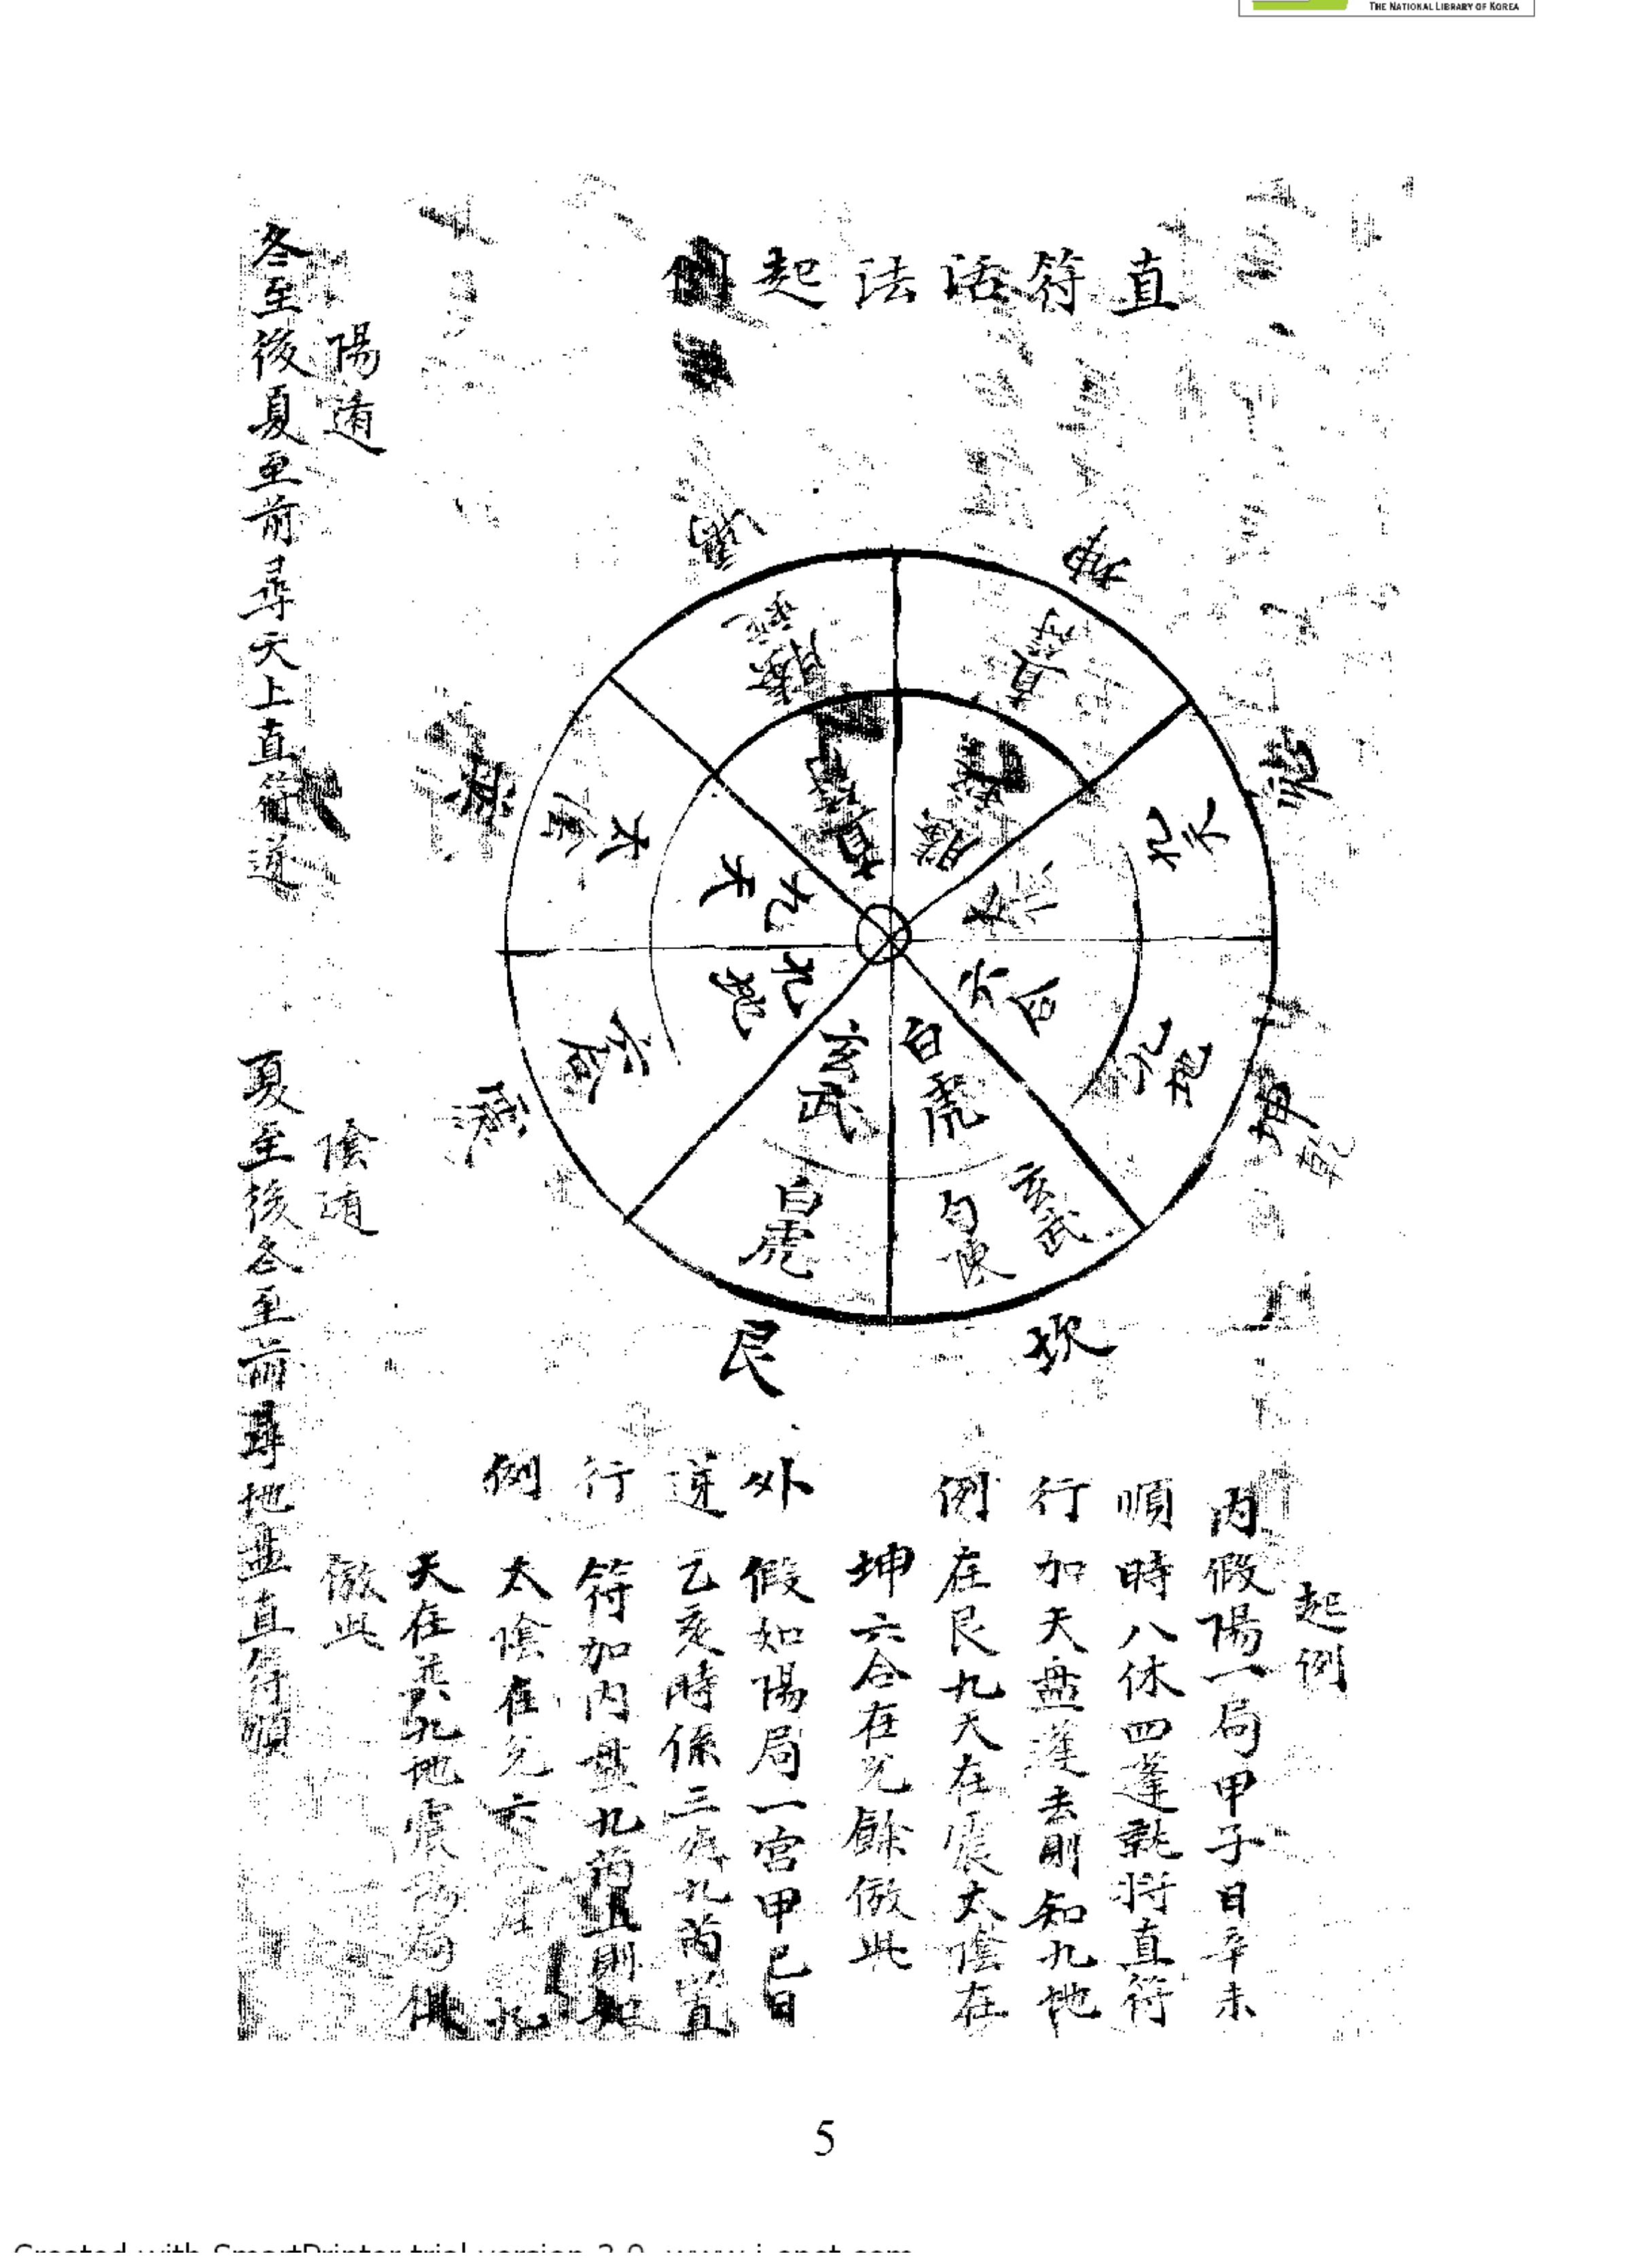 THE NATIONAL LIBRARY OF KOREA
直符活法起例
坤
兌
坤
乾
坎
艮
震
直符
九天
九地
玄武
勾陳
白虎
六合
太陰
直符
白虎
玄武
九地
九天
起例
內順行例
假陽一局甲子日辛未
時八休四蓬就將直符
加天盤蓬去則知九地
在艮九天在震太陰在
坤六合在兌餘倣此
外逆行例
假如陽局一宮甲己日
乙亥時係三 九芮直
符加內盤九芮直則知
太陰在兌六 在 九
天在巽九地震 局俱
倣此
陽遁
冬至後夏至前尋天上直符逆
陰遁
夏至後冬至前尋地盤直符順
5
Created with SmartPrinter trial version 2.0 www.i-enet.com